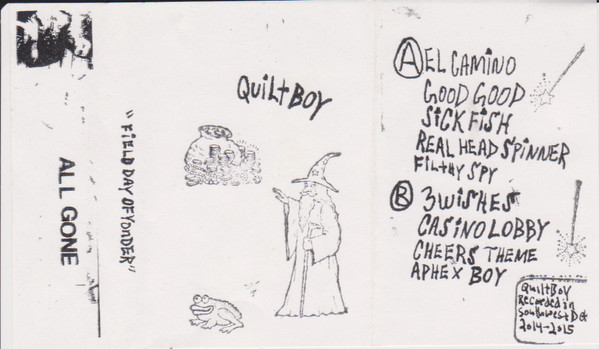 ALL GONE
"FiELD DAY OF YonDER"
QuiLt BOY
A EL CAMINO
GOOD GOOD
SiCK FISH
REAL HEAD SPINNER
FiLtHy SPY
B 3 WiSHES
CASINO LOBBY
CHEERS THEME
APHEX BOY
QuiLtBoy
Recorded in
Southwest Det
2014-2015